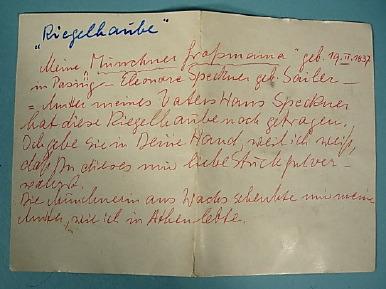 "Riegelhaube"
Meine "Münchner Großmama" geb. 19.II.1837
in Pasing - Eleonore Speckner geb. Sailer -
= Mutter meines Vaters Hans Speckner
hat diese Riegelhaube noch getragen.
Ich gebe sie in Deine Hand, weil ich weiß,
daß Du dieses mir liebe Stück gut ver-
wahrst.
Die Münchnerin aus Wachs schenkte mir meine
Mutter, wie ich in Athen lebte.